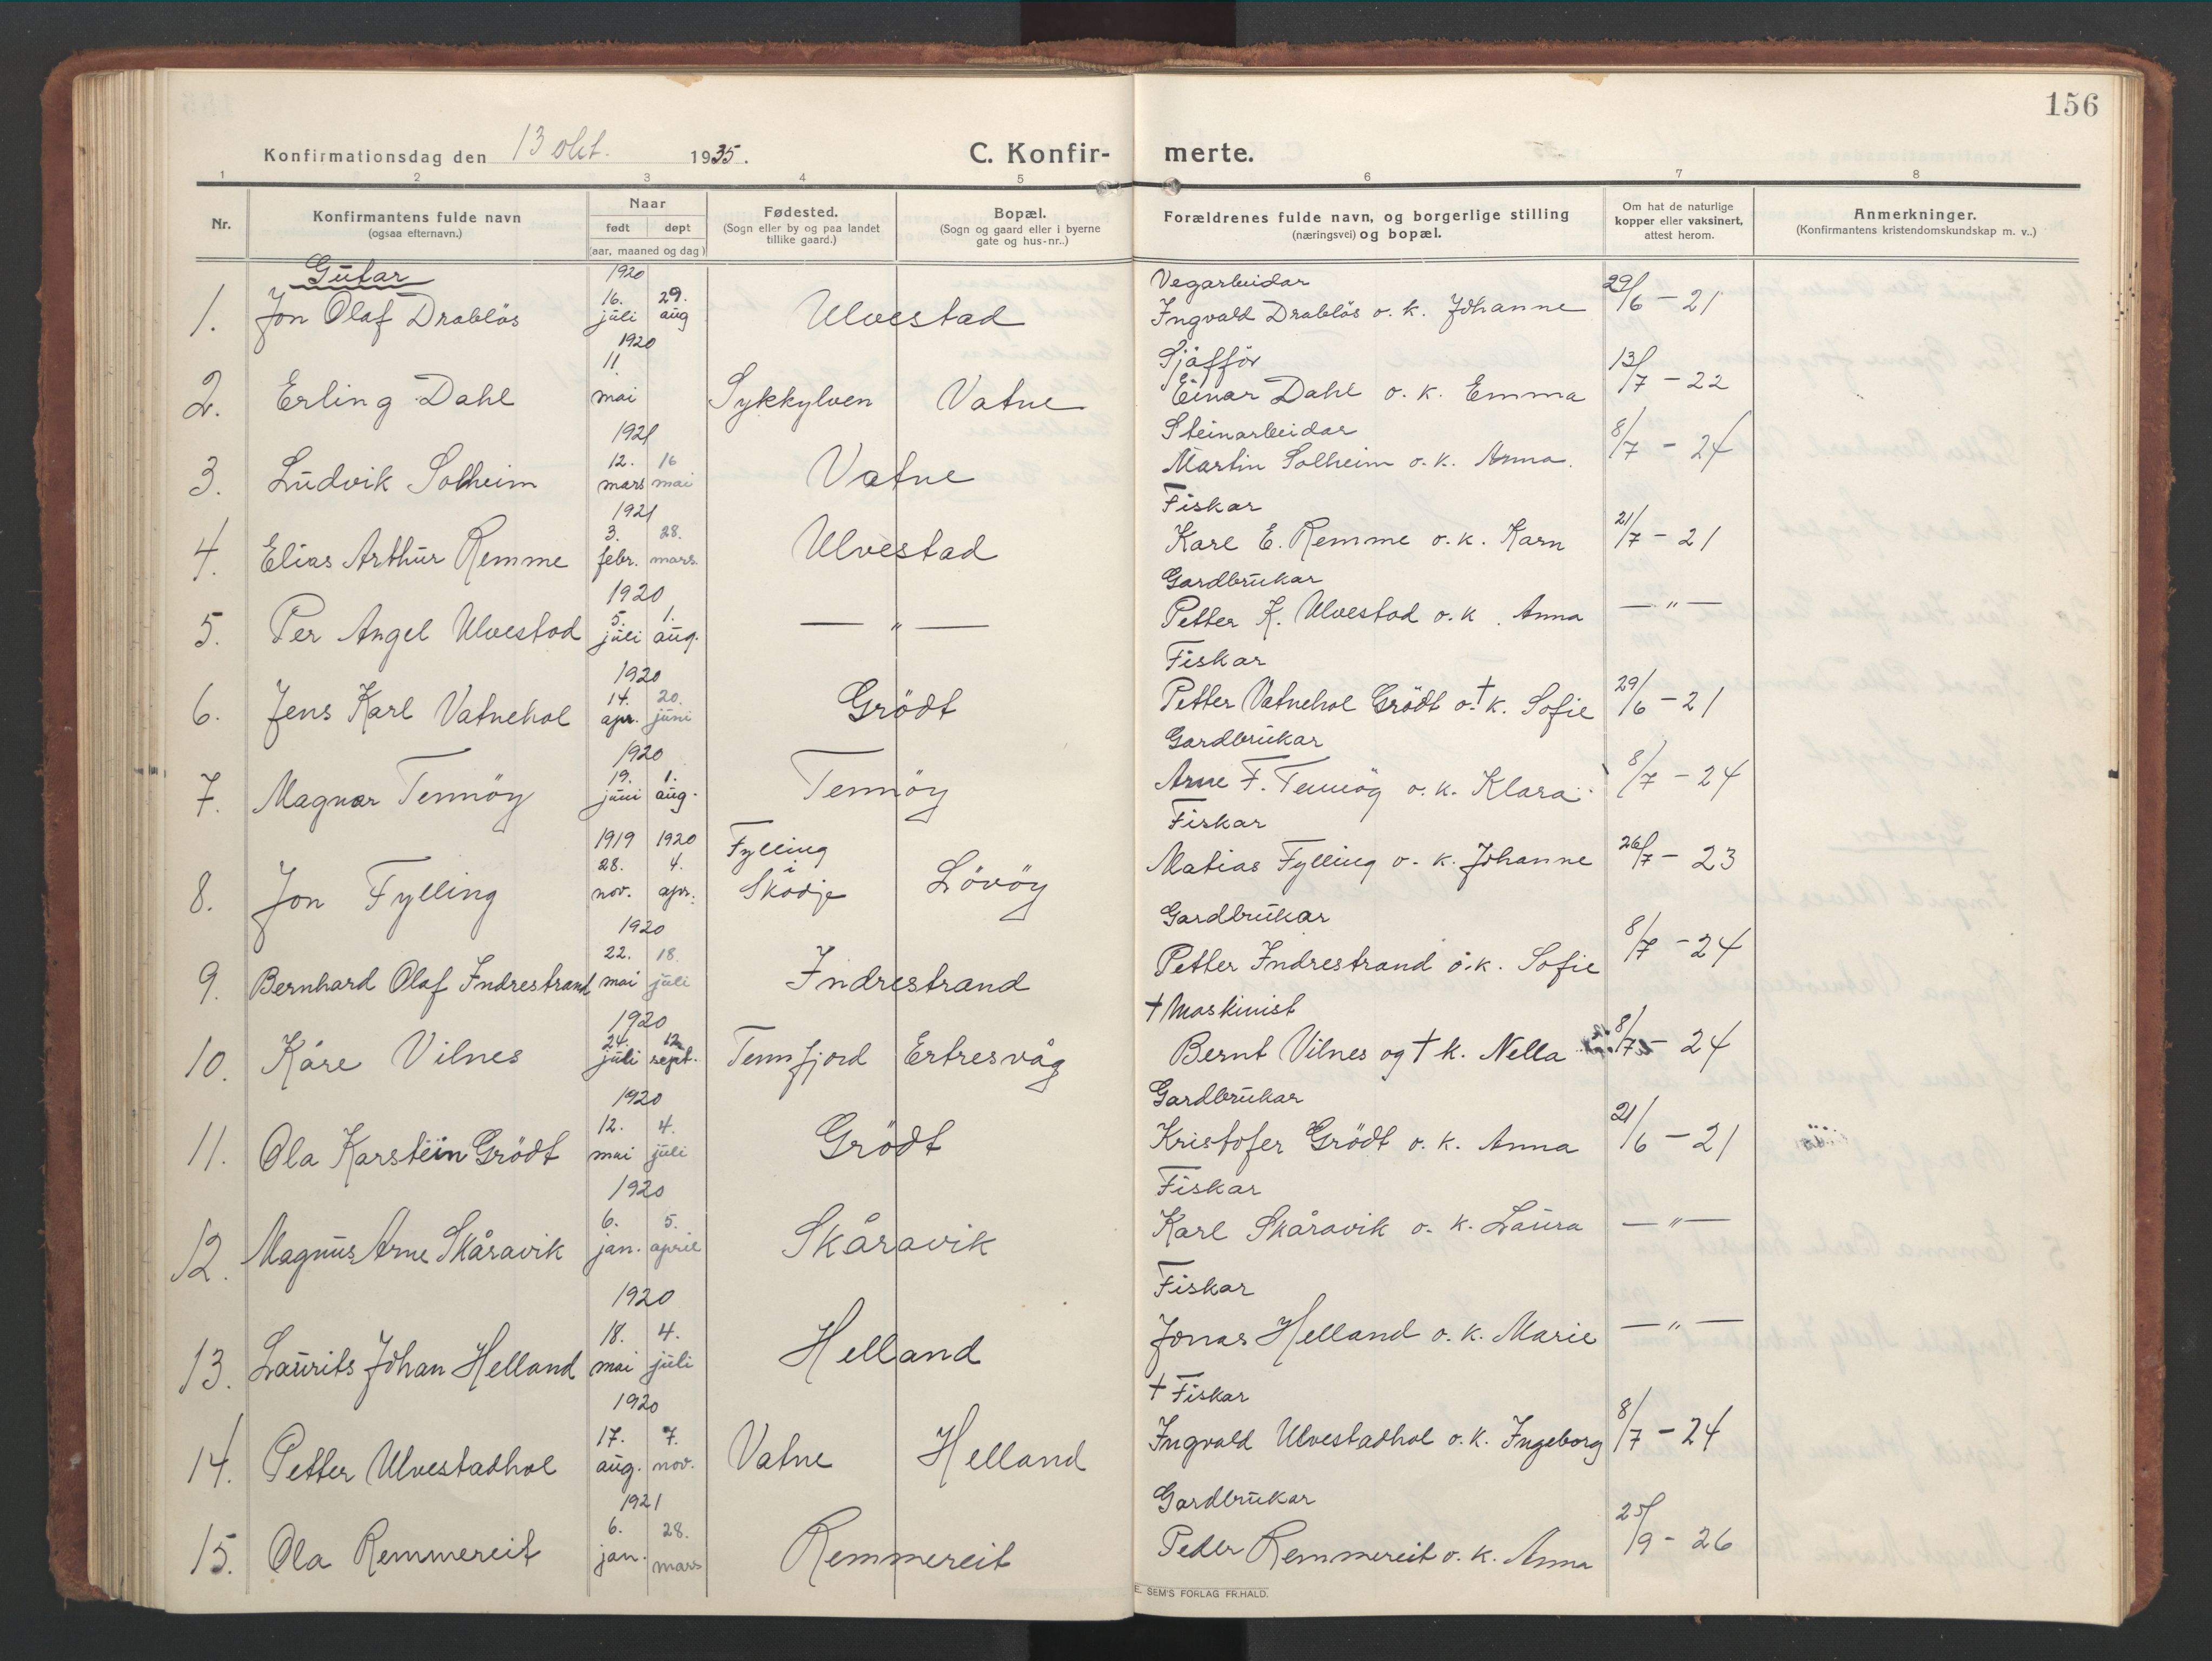 156
Konfirmationsdag den 13 okt. 1935.
C. Konfir-merte.
1 2 3 4 5 6 7 8
Nr.
Konfirmantens fulde navn
(ogsaa efternavn.)
Naar
født døpt
(aar, maaned og dag)
Fødested.
(Sogn eller by og paa landet
tillike gaard.)
Bopæl.
(Sogn og gaard eller i byerne
gate og hus-nr..)
Forældrenes fulde navn, og borgerlige stilling
(næringsvei) og bopæl.
Om hat de naturlige
kopper eller vaksinert,
attest herom.
Anmerkninger.
(Konfirmantens kristendomskundskap m. v..)
Gutar
1920 Vegarbeidar
1. Jon Olaf Drabløs 16. juli 29. aug Ulvestad Ingvald Drabløs o. k. Johanne 29/6 - 21
1920 Sjåffør
2. Erling Dahl 11. mai Sykkylven Vatne Einar Dahl o. k. Emma 13/7 - 22
1921 Steinarbeidar
3. Ludvik Solheim 12. mars 16 mai Vatne Martin Solheim o. k. Anna. 8/7 - 24
1921 Fiskar
4. Elias Arthur Remme 3. febr. 28. mars. Ulvestad Karl E. Remme o. k. Karn 21/7 - 21
1920 Gardbrukar
5. Per Angel Ulvestad 5. juli 1. aug. — " — Petter K. Ulvestad o. k. Anna — " —
1920 Fiskar
6. Jens Karl Vatnehol 14. apr. 20. juni Grödt Petter Vatnehol Grödt o. † k. Sofie 29/6 - 21
1920 Gardbrukar
7. Magnar Tennöy 19. juni 1. aug. Tennöy Arne F. Tennöy o. k. Klara 8/7 - 24
1919 1920 Fiskar
8. Jon Fylling 28. nov. 4. apr. Fylling i Skodje Lövöy Matias Fylling o. k. Johanne 26/7 - 23
1920 Gardbrukar
9. Bernhard Olaf Indrestrand 22. mai 18. juli Indrestrand Petter Indrestrand o. k. Sofie 8/7 - 24
1920 † Maskinist
10. Kåre Vilnes 24. juli 12 sept. Tennfjord Ertresvåg Bernt Vilnes og † k. Nella 8/7 - 24
1920 Gardbrukar
11. Ola Karstein Grödt 12. mai 4. juli Grödt Kristofer Grödt o. k. Anna 21/6 - 21
1920 Fiskar
12. Magnus Arne Skåravik 6. jan. 5. april Skåravik Karl Skåravik o. k. Laura — " —
1920 Fiskar
13. Laurits Johan Helland 18. mai 4. juli Helland Jonas Helland o. k. Marie — " —
1920 † Fiskar
14. Petter Ulvestadhol 17. aug. 7. nov. Vatne Helland Ingvald Ulvestadhol o. k. Ingeborg 8/7 - 24
1921 Gardbrukar
15. Ola Remmereit 6. jan. 28. mars Remmereit Peder Remmereit o. k. Anna 25/9 - 26
E. SEM'S FORLAG FR.HALD.